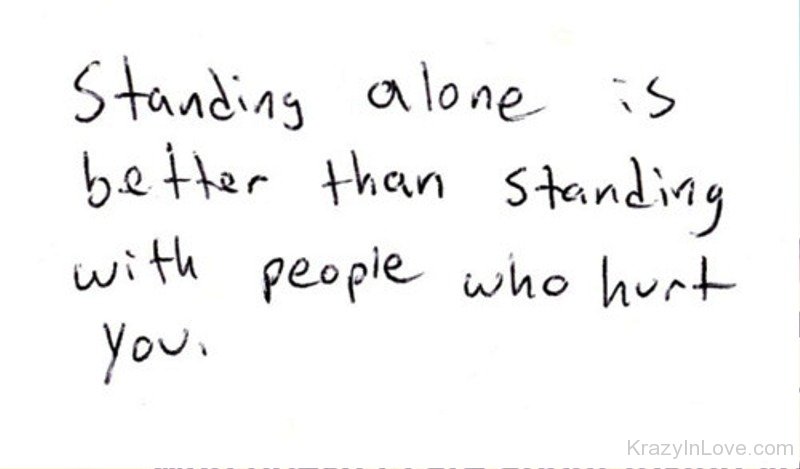 Standing alone is
better than standing
with people who hurt
you.
KrazyInLove.com